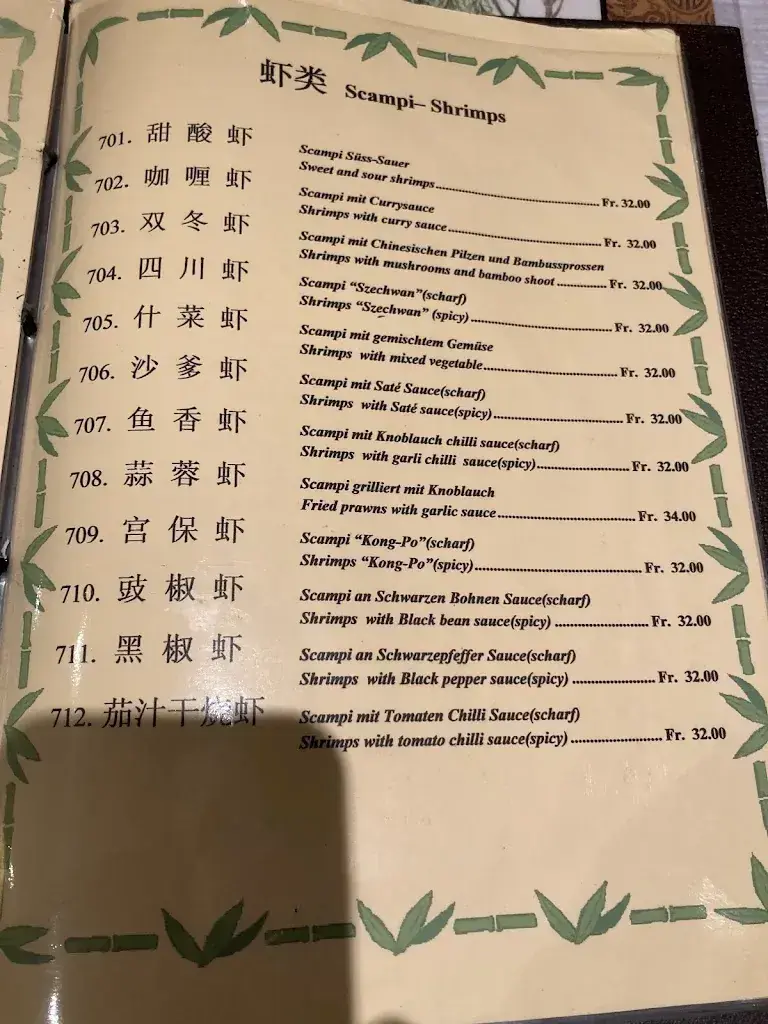 虾类 Scampi– Shrimps
701. 甜 酸 虾
Scampi Süss-Sauer
Sweet and sour shrimps........................................ Fr. 32.00
702. 咖 喱 虾
Scampi mit Currysauce
Shrimps with curry sauce..................................... Fr. 32.00
703. 双 冬 虾
Scampi mit Chinesischen Pilzen und Bambussprossen
Shrimps with mushrooms and bamboo shoot ............ Fr. 32.00
704. 四 川 虾
Scampi “Szechwan”(scharf)
Shrimps “Szechwan” (spicy).................................. Fr. 32.00
705. 什 菜 虾
Scampi mit gemischtem Gemüse
Shrimps with mixed vegetable................................ Fr. 32.00
706. 沙 爹 虾
Scampi mit Saté Sauce(scharf)
Shrimps with Saté sauce(spicy)............................... Fr. 32.00
707. 鱼 香 虾
Scampi mit Knoblauch chilli sauce(scharf)
Shrimps with garli chilli sauce(spicy)...................... Fr. 32.00
708. 蒜 蓉 虾
Scampi grilliert mit Knoblauch
Fried prawns with garlic sauce................................. Fr. 34.00
709. 宫 保 虾
Scampi “Kong-Po”(scharf)
Shrimps “Kong-Po”(spicy)....................................... Fr. 32.00
710. 豉 椒 虾
Scampi an Schwarzen Bohnen Sauce(scharf)
Shrimps with Black bean sauce(spicy) ...................... Fr. 32.00
711. 黑 椒 虾
Scampi an Schwarzepfeffer Sauce(scharf)
Shrimps with Black pepper sauce(spicy) ................... Fr. 32.00
712. 茄汁干烧虾
Scampi mit Tomaten Chilli Sauce(scharf)
Shrimps with tomato chilli sauce(spicy) ..................... Fr. 32.00